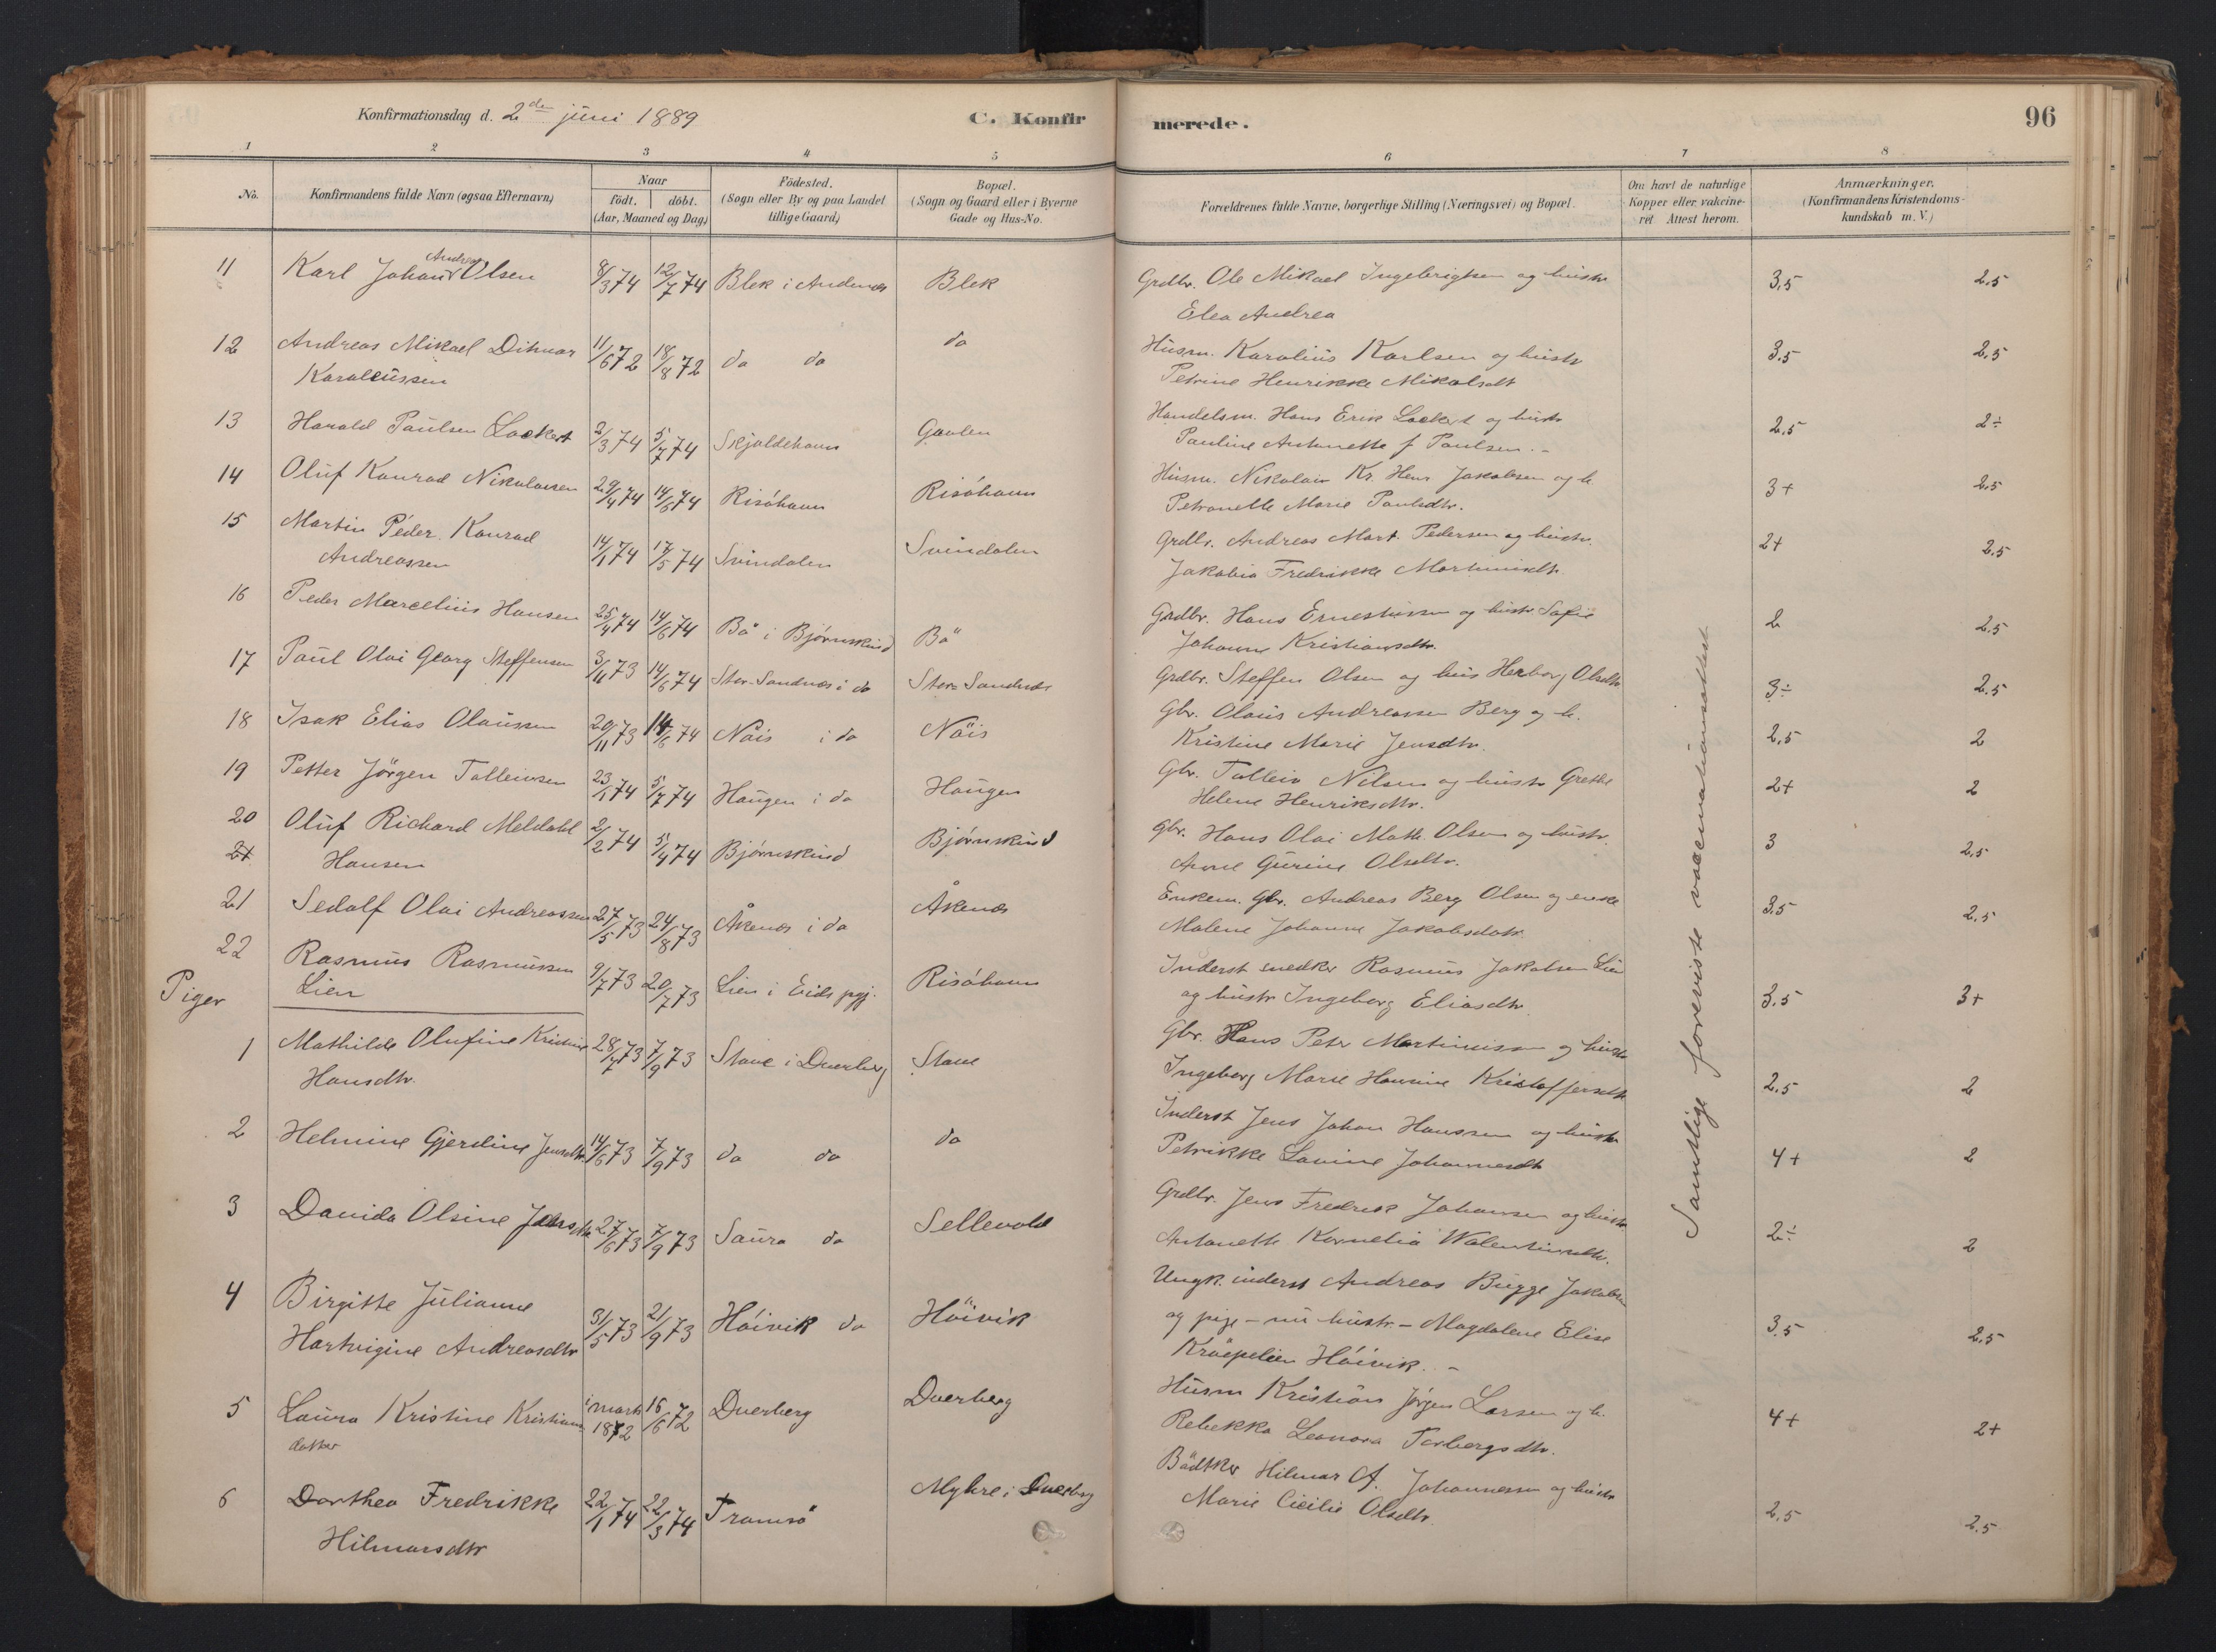 Konfirmationsdag d. 2den juni 1889
C. Konfirmerede.
96
1 2 3 4 5 6 7 8
No.
Konfirmandens fulde Navn (ogsaa Efternavn)
Naar
födt. döbt.
(Aar, Maaned og Dag)
Födested.
(Sogn eller By og paa Landet
tillige Gaard)
Bopæl.
(Sogn og Gaard eller i Byerne
Gade og Hus-No.
Forældrenes fulde Navne, borgerlige Stilling (Næringsvei) og Bopæl.
Om havt de naturlige
Kopper eller vakcine-
ret Attest herom.
Anmærkninger.
(Konfirmandens Kristendoms-
kundskab m. V.)
11 Karl Johan Andreas Olsen 8/3 74 12/7 74 Blek i Andenes Blek Grdbr. Ole Mikael Ingebrigtsen og hustr 3,5 2.5
Elea Andrea
12 Andreas Mikael Ditmar 11/6 72 18/8 72 do do do Husm. Karolius Karlsen og hustr 3.5 2.5
Karoleussen Petrine Henrikke Mikalsdt
13 Harald Paulsen Lockert 2/3 74 5/7 74 Skjoldehavn Gavlen Handelsm. Hans Erik Lockert og hustr 2,5 2÷
Pauline Antonette f Paulsen.-
14 Oluf Konrad Nikolaisen 29/4 74 14/6 74 Risöhavn Risöhavn Husm. Nikolai Kr. Henr Jakobsen og h. 3+ 2.5
Petronelle Marie Paulsdtr.
15 Martin Peder Konrad 14/1 74 17/5 74 Svindalen Svindalen Grdbr. Andreas Mart. Pedersen og hustr. 2+ 2.5
Andreassen Jakobia Fredrikke Martinusdtr.
16 Peder Marcelius Hansen 25/4 74 14/6 74 Bö i Björnskind Bö Grdbr. Hans Ernestussen og hustr. Sofie 2 2.5
Johanna Kristiansdtr.
17 Paul Olai Georg Steffensen 3/11 73 14/6 74 Stor-Sandnes i do Stor-Sandnes Grdbr. Steffen Olsen og hus Herborg Olsdtr 3÷ 2.5
18 Isak Elias Olaussen 20/11 73 14/6 74 Nöis i do Nöis Gbr. Olaus Andreassen Berg og h. 2,5 2
Kristine Marie Jensdtr.
19 Petter Jörgen Tolleivsen 23/1 74 5/7 74 Haugen i do Haugen Gbr. Tolleiv Nilsen og hustr Grethe 2+ 2
Helene Henriksdtr.
20 Oluf Richard Meldahl 2/2 74 5/4 74 Björnskind Björnskind Gbr. Hans Olai Math. Olsen og hustr. 3 2,5
21 Hansen Anne Gurine Olsdtr.
21 Sedolf Olai Andreassen 27/5 73 24/8 73 Åkenes i do Åkenes Enkem. Gbr. Andreas Berg Olsen og enke 3.5 2,5
Malene Johanna Jakobsdatr.
22 Rasmus Rasmussen 9/7 73 20/7 73 Lien i Eids pgj. Risöhavn Inderst snedker Rasmus Jakobsen Lien 3.5 3+
Lien og hustr Ingeborg Eliasdtr.
Piger
1 Mathilde Olufine Kristine 28/7 73 7/9 73 Stave i Dverberg Stave Gbr. Hans Peter Martinussen og hustr 2.5 2
Hansdtr. Ingeborg Marie Hansine Kristoffersdtr
2 Helmine Gjerdine Jensdtr. 14/6 73 7/9 73 do do do Inderst Jens Johan Hanssen og hustr 4+ 2
Petrikke Lavine Johannesdt
3 Davida Olsine Jensdtr 27/6 73 7/9 73 Saura do Sellevold Grdbr. Jens Fredrik Johansen og hustr 2÷ 2
Antonette Kornelia Walentinsdtr.
4 Birgitte Julianne 31/5 73 21/9 73 Höivik do Höivik Ungk. inderst Andreas Bugge Jakobsen 3.5 2,5
Hartvigine Andreasdtr og pige - nu hustr. - Magdalene Elise
Kräepelien Höivik. -
5 Laura Kristine Kristians i marts 1872 16/6 72 Dverberg Dverberg Husm Kristian Jörgen Larsen og h. 4+ 2+
datter Rebekka Leonora Torbergsdtr.
6 Dorthea Fredrikke 22/1 74 22/3 74 Tromsö Myhre i Dverberg Bödtker Hilmar A. Johannessen og hustr 2,5 2.5
Hilmarsdtr Marie Cicilie Olsdtr.
Samtlige foreviste vaccinationsattest